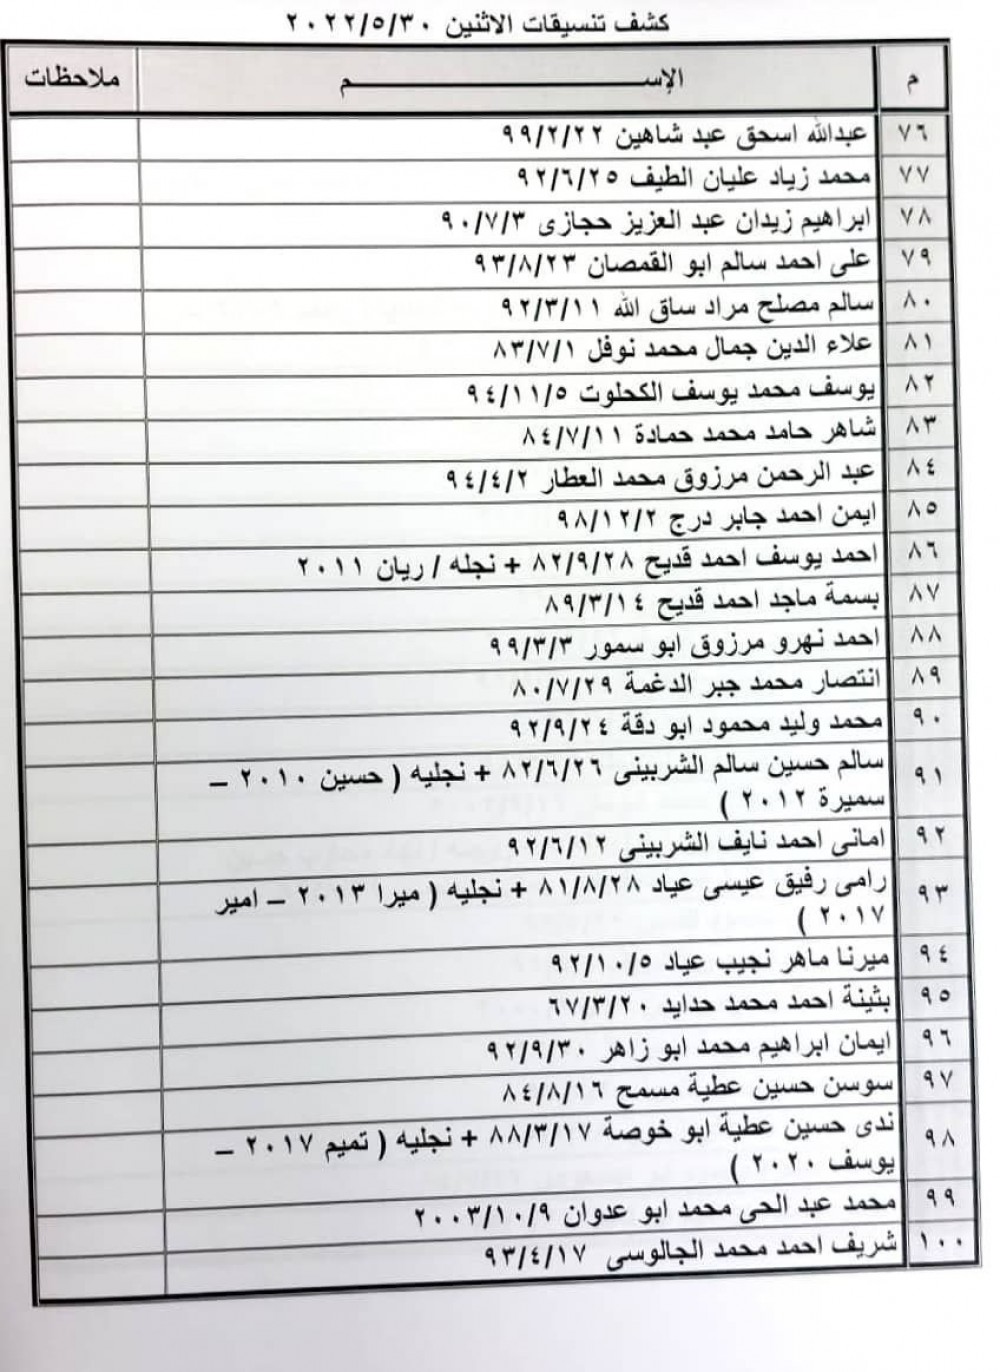 كشف تنسيقات الاثنين ٢٠٢٢/٥/٣٠
م الإســـــــــــــم ملاحظات
٧٦ عبدالله اسحق عبد شاهين ٩٩/٢/٢٢
٧٧ محمد زياد عليان الطيف ٩٢/٦/٢٥
٧٨ ابراهيم زيدان عبد العزيز حجازى ٩٠/٧/٣
٧٩ على احمد سالم ابو القمصان ٩٣/٨/٢٣
٨٠ سالم مصلح مراد ساق الله ٩٢/٣/١١
٨١ علاء الدين جمال محمد نوفل ٨٣/٧/١
٨٢ يوسف محمد يوسف الكحلوت ٩٤/١١/٥
٨٣ شاهر حامد محمد حمادة ٨٤/٧/١١
٨٤ عبد الرحمن مرزوق محمد العطار ٩٤/٤/٢
٨٥ ايمن احمد جابر درج ٩٨/١٢/٢
٨٦ احمد يوسف احمد قديح ٨٢/٩/٢٨ + نجله / ريان ٢٠١١
٨٧ بسمة ماجد احمد قديح ٨٩/٣/١٤
٨٨ احمد نهرو مرزوق ابو سمور ٩٩/٣/٣
٨٩ انتصار محمد جبر الدغمة ٨٠/٧/٢٩
٩٠ محمد وليد محمود ابو دقة ٩٢/٩/٢٤
٩١ سالم حسين سالم الشربينى ٨٢/٦/٢٦ + نجليه ( حسين ٢٠١٠ –
سميرة ٢٠١٢ )
٩٢ امانى احمد نايف الشربينى ٩٢/٦/١٢
٩٣ رامى رفيق عيسى عياد ٨١/٨/٢٨ + نجليه ( ميرا ٢٠١٣ – امير
٢٠١٧ )
٩٤ ميرنا ماهر نجيب عياد ٩٢/١٠/٥
٩٥ بثينة احمد محمد حدايد ٦٧/٣/٢٠
٩٦ ايمان ابراهيم محمد ابو زاهر ٩٢/٩/٣٠
٩٧ سوسن حسين عطية مسمح ٨٤/٨/١٦
٩٨ ندى حسين عطية ابو خوصة ٨٨/٣/١٧ + نجليه ( تميم ٢٠١٧ –
يوسف ٢٠٢٠ )
٩٩ محمد عبد الحى محمد ابو عدوان ٢٠٠٣/١٠/٩
١٠٠ شريف احمد محمد الجالوسى ٩٣/٤/١٧